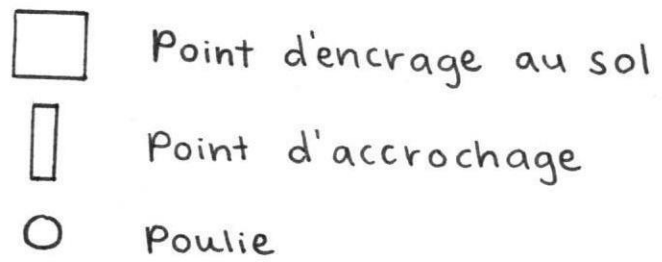 Point d'encrage au sol
Point d'accrochage
Poulie